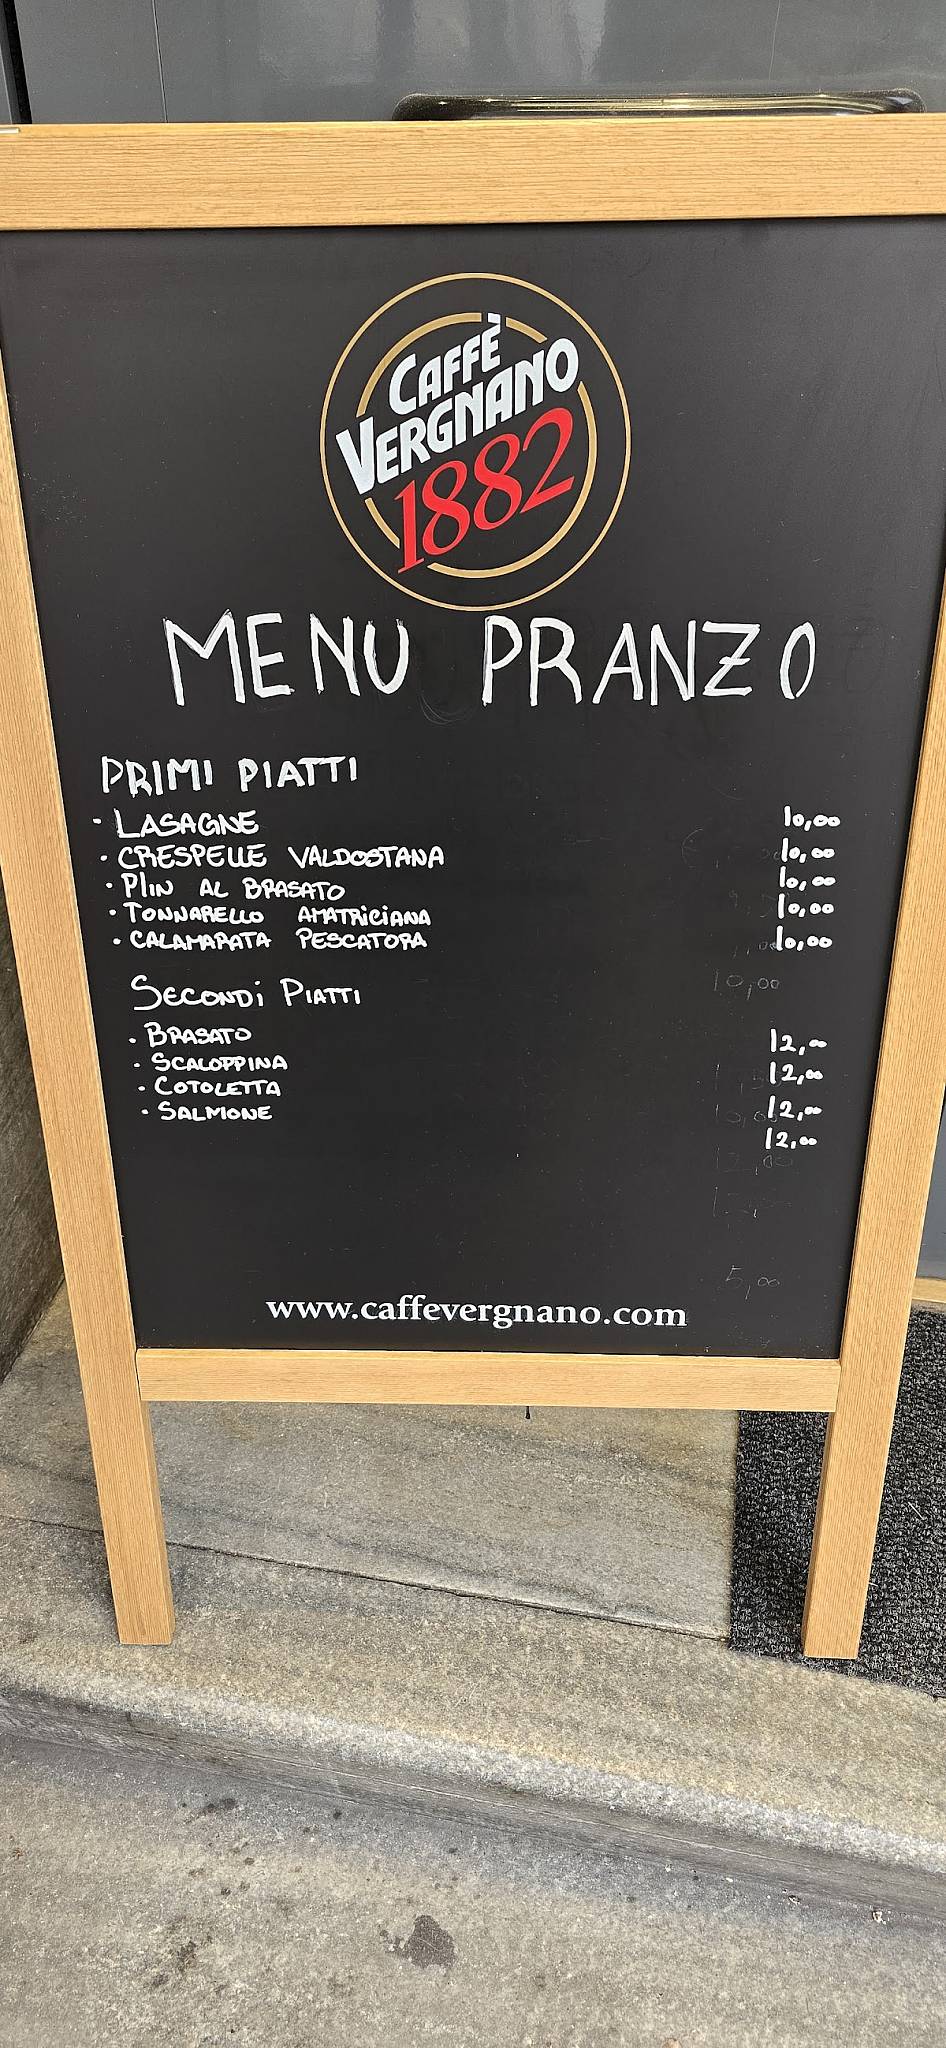 CAFFÈ
VERGNANO
1882
MENU PRANZO
PRIMI PIATTI
· LASAGNE 10,00
· CRESPELLE VALDOSTANA 10,00
· PLIN AL BRASATO 10,00
· TONNARELLO AMATRICIANA 10,00
· CALAMARATA PESCATORA 10,00
10,00
SECONDI PIATTI
· BRASATO 12,00
· SCALOPPINA 12,00
· COTOLETTA 12,00
· SALMONE 12,00
12,00
5,00
www.caffevergnano.com